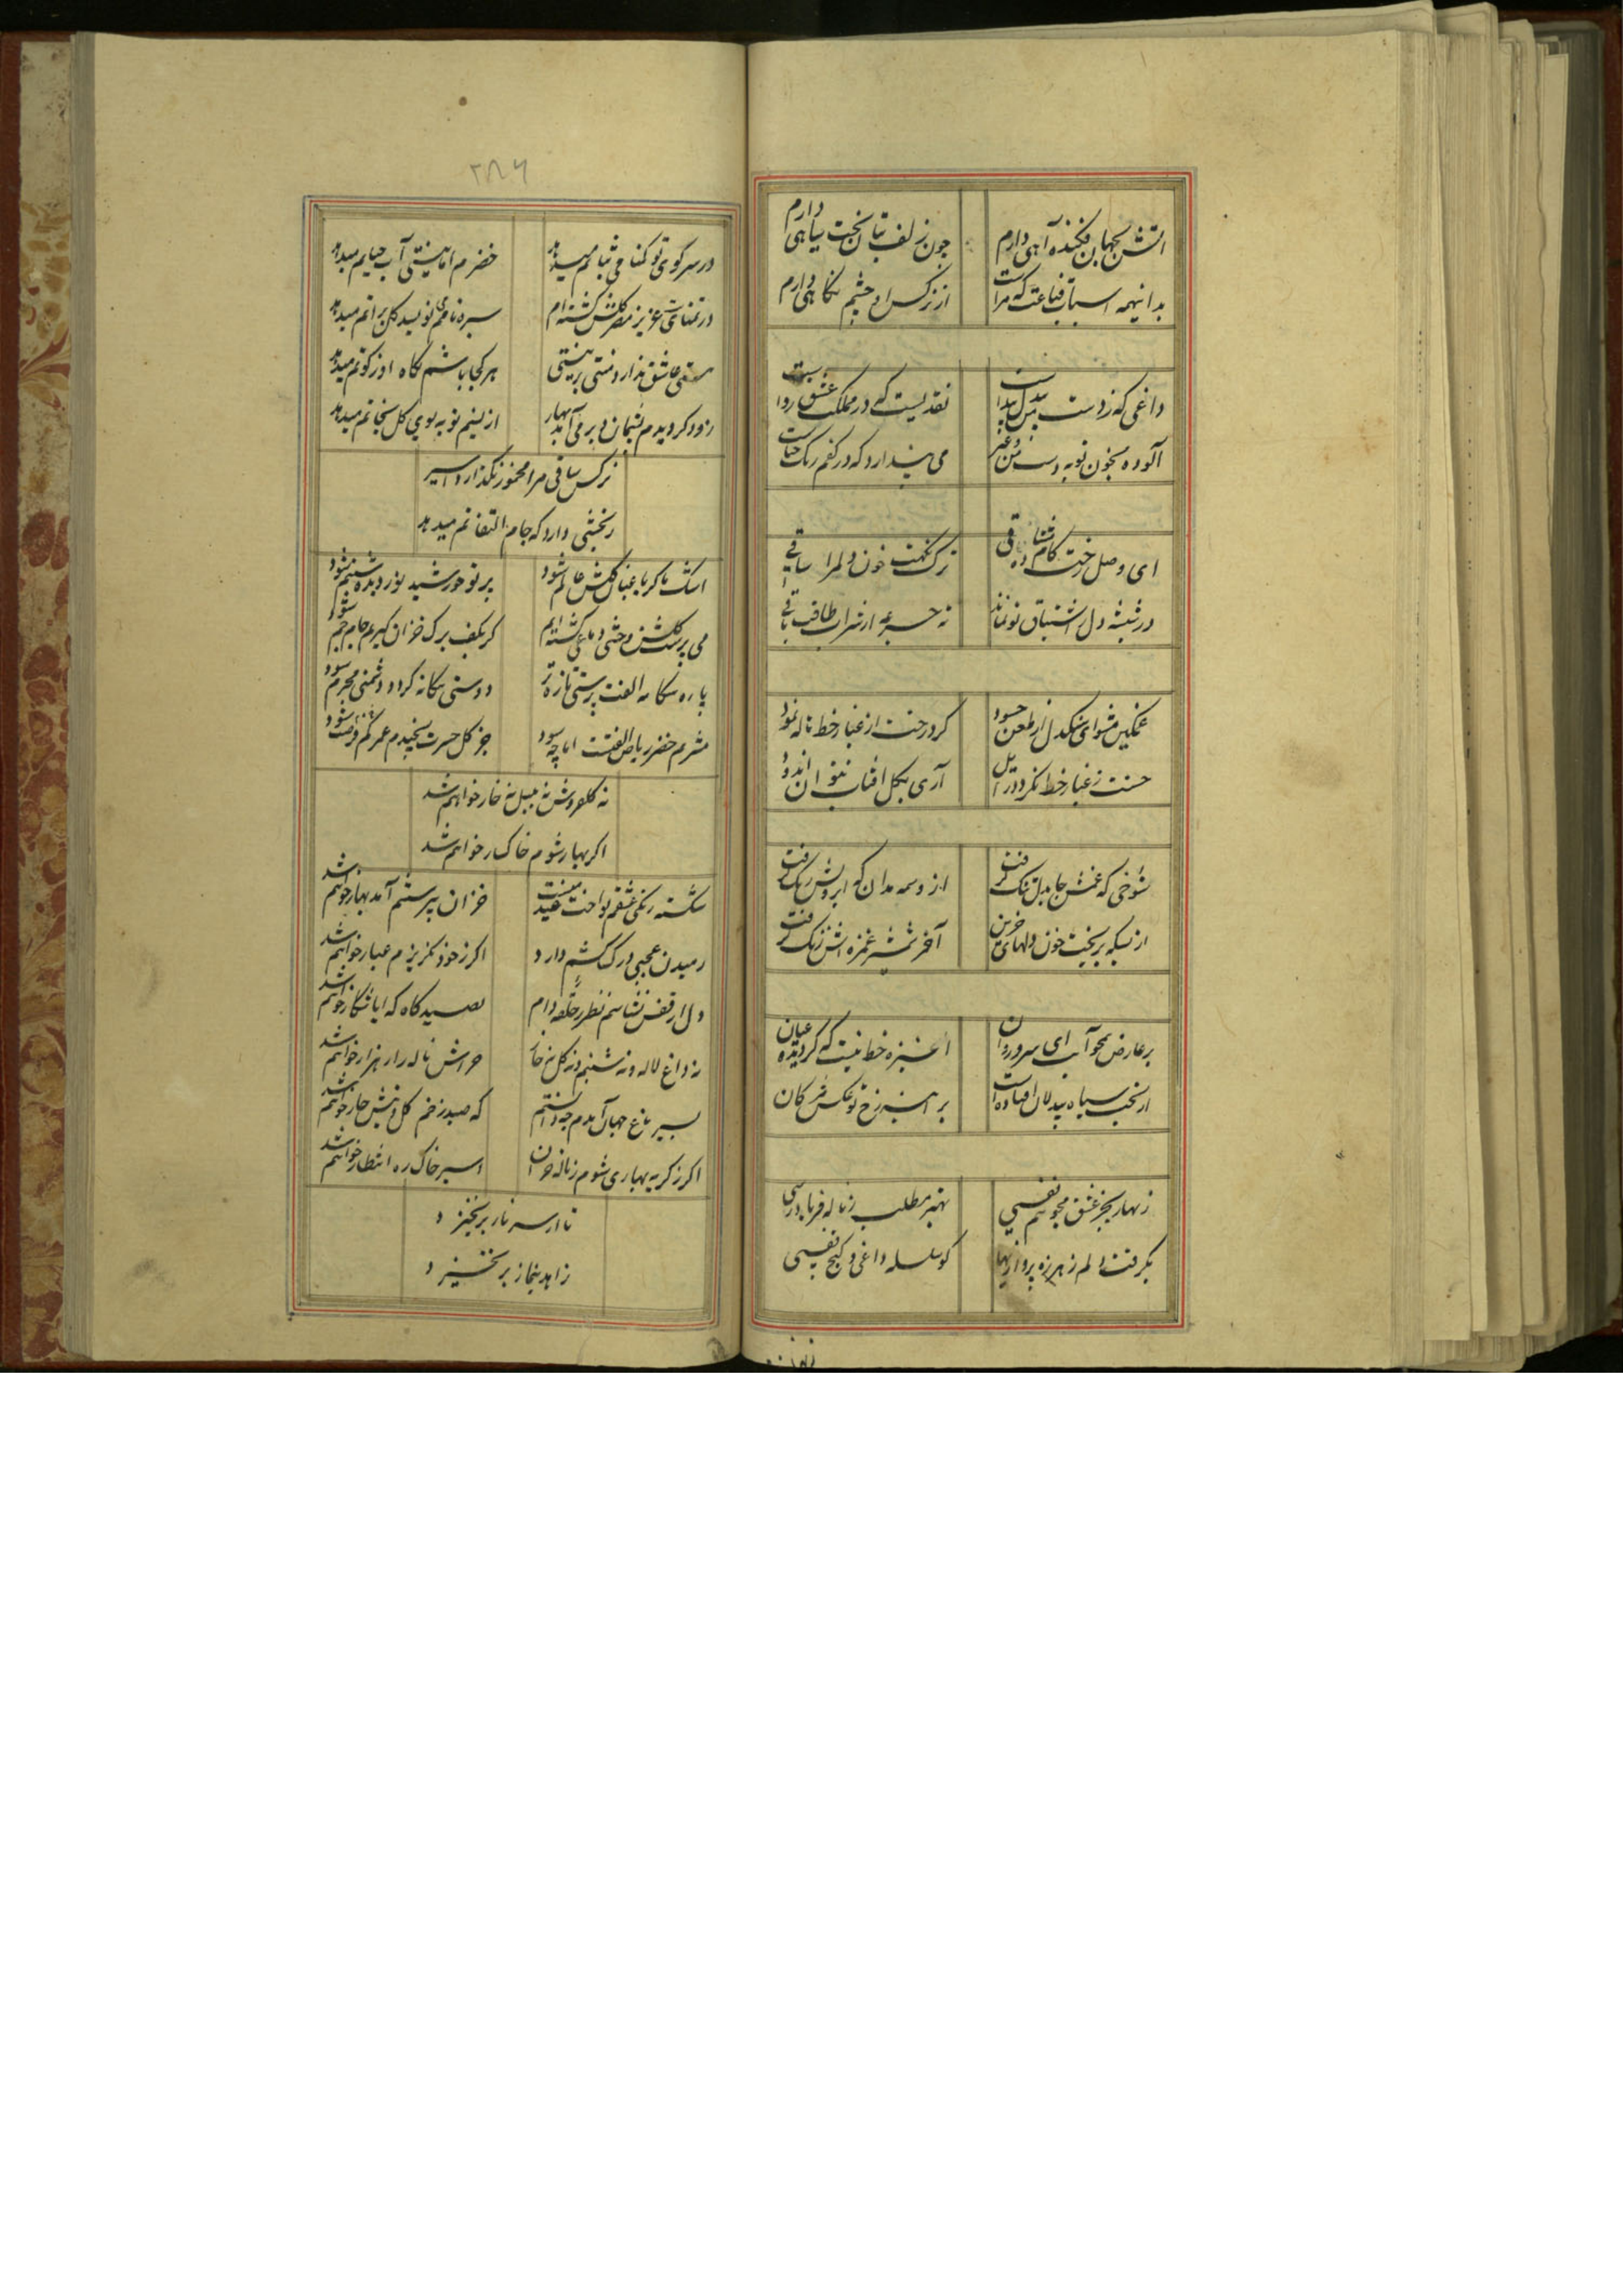 آتش بجهان فکنده آهی دارم
چون زلف بتان بخت سیاهی دارم
با اینهمه اسباب قناعت که مراست
از نرکس او چشم نکاهی دارم
داغی که ز دوست بر دل پیداست
نقدیست که در مملکت عشق رواست
آلوده بخون توبه دست من و غیر
می پندارد که در کفم رنک حناست
ای وصل رخت کام دل مشتاقی
ترک نکهت خون دلم را ساقی
در شیشه دل اشتیاق تو نماند
ته جرعه از شراب طاقت باقی
غمکین مشو ای سنکدل از طعن حسود
کرد رخت از غبار خط ناله نمود
حسنت ز غبار خط نکردد زایل
آری بکل آفتاب نتوان اندود
شوخی که غمش جا بدل تنک کرفت
از وسمه مدان که ابرویش رنک کرفت
از بسکه بریخت خون دلهای حزین
آخر شمشیر غمزه اش زنک کرفت
بر عارض همچو آبت ای سرو روان
آن سبزه خط نیست که کردیده عیان
از بخت سیاه بیدلان افتاده است
بر آینه رخ تو عکس مژکان
زنهار بجز عشق مجو هم نفسی
بهتر مطلب ز ناله فریادرسی
بکرفت دلم ز هرزه پروازیها
کو سلسله داغی و کنج قفسی
۲۸۶
در سر کوی تو کمنامی ثباتم میدهد
خضرم اما نیستی آب حیاتم میدهد
در تمنای عزیز مصر کلشن کشته ام
سبزه نامی نویسد کل براتم میدهد
هستی عاشق ندارد منتی بر نیستی
هر کجا باشم نکاه او زکوتم میدهد
زود کردیدم پشیمان دیر می آید بهار
از نسیم توبه بوی کل نجاتم میدهد
نرکس ساقی مرا مخمور نکذارد اسیر
بخششی دارد که جام التفاتم میدهد
اشک ما کر باغبان کلشن عالم شود
پرتو خورشید نور دیده شبنم شود
می پرست کلشن وحشی دماغی کشته ایم
کر بکف برک خزان کیریم جام جم شود
پاره بیکانه الفت پرستی تازه تر
دوستی بیکانه کردد دشمنی محرم شود
مشربم خضر ریاض الفتست اما چه سود
جز کل حسرت نچیدم عمر کم فرصت شود
نه کلفروش نه بلبل نه خار خواهم شد
اکر بهار شوم خاکسار خواهم شد
شکسته رنکی عشقم نواخت عید منست
خزان پرستم آمد بهار خواهم شد
رمیدن عجبی در رک کشم دارد
اکر ز خود نکریزم غبار خواهم شد
دل از قفس نشناسم نظر ز حلقه دام
بصیدکاه که ایا شکار خواهم شد
نه داغ لاله و نه شبنم و نه کل نه خار
خراش ناله زار هزار خواهم شد
بسیر باغ جهان آمدم چه دانستم
که صید زخم کل و نیش خار خواهم شد
اکر ز کریه بهاری شوم ز ناله خزان
اسیر خاک ره انتظار خواهم شد
تا از سر ناز بر نخیزد
زاهد بنماز بر نخیزد